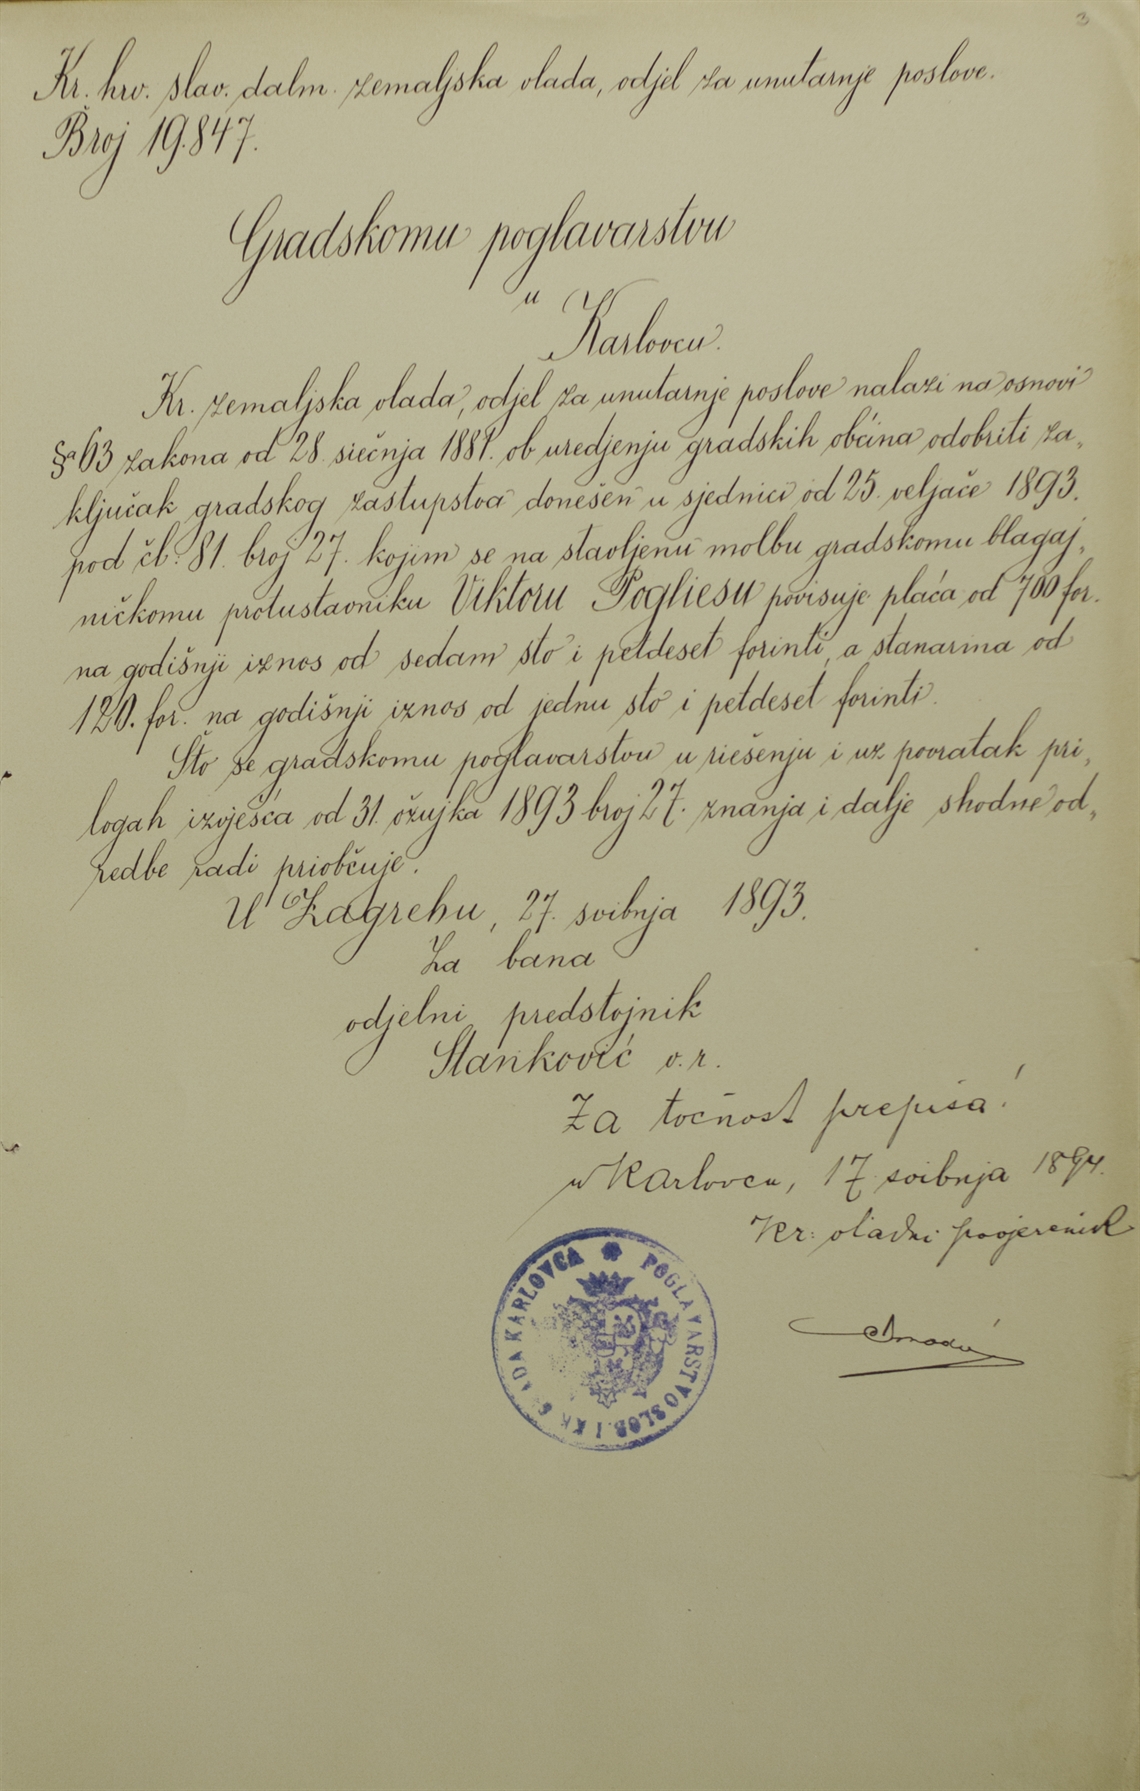 3
Kr. hrv. slav. dalm. zemaljska vlada, odjel za unutarnje poslove.
Broj 19.847.
Gradskomu poglavarstvu
u
Karlovcu.
Kr. zemaljska vlada, odjel za unutarnje poslove nalazi na osnovi
§a 63 zakona od 28. siečnja 1881. ob uredjenju gradskih obćina odobriti za„
ključak gradskog zastupstva donešen u sjednici od 25. veljače 1893.
pod čl: 81. broj 27. kojim se na stavljenu molbu gradskomu blagaj„
ničkomu protustavniku Viktoru Pogliesu povisuje plaća od 700 for.
na godišnji iznos od sedam sto i petdeset forinti, a stanarina od
120. for. na godišnji iznos od jednu sto i petdeset forinti.
Što se gradskomu poglavarstvu u riešenju i uz povratak pri„
logah izvješća od 31. ožujka 1893 broj 27. znanja i dalje shodne od„
redbe radi priobćuje.
U Zagrebu, 27. svibnja 1893.
Za bana
odjelni predstojnik
Stanković v. r.
Za točnost prepisa!
u Karlovcu, 17 svibnja 1894.
Kr: vladni povjerenik
POGLAVARSTVO SLOB. I KR. GRADA KARLOVCA